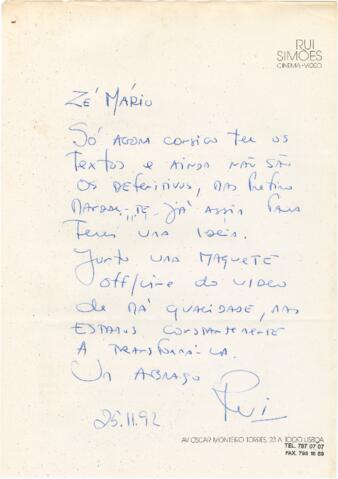 RUI
SIMÕES
CINEMA-VIDEO
ZÉ MÁRIO
SÓ AGORA CONSIGO TER OS
TEXTOS E AINDA NÃO SÃO
OS DEFINITIVOS, MAS PREFIRO
MANDAR-TE JÁ ASSIM PARA
TERES UMA IDEIA.
JUNTO UMA MAQUETE
OFF/LINE DO VIDEO
DE MÁ QUALIDADE, MAS
ESTAMOS CONSTANTEMENTE
A TRANSFORMÁ-LA.
UM ABRAÇO
RUI
25.11.92
AV. OSCAR MONTEIRO TORRES, 23 A. 1000 LISBOA
TEL. 797 07 07
FAX. 796 16 69